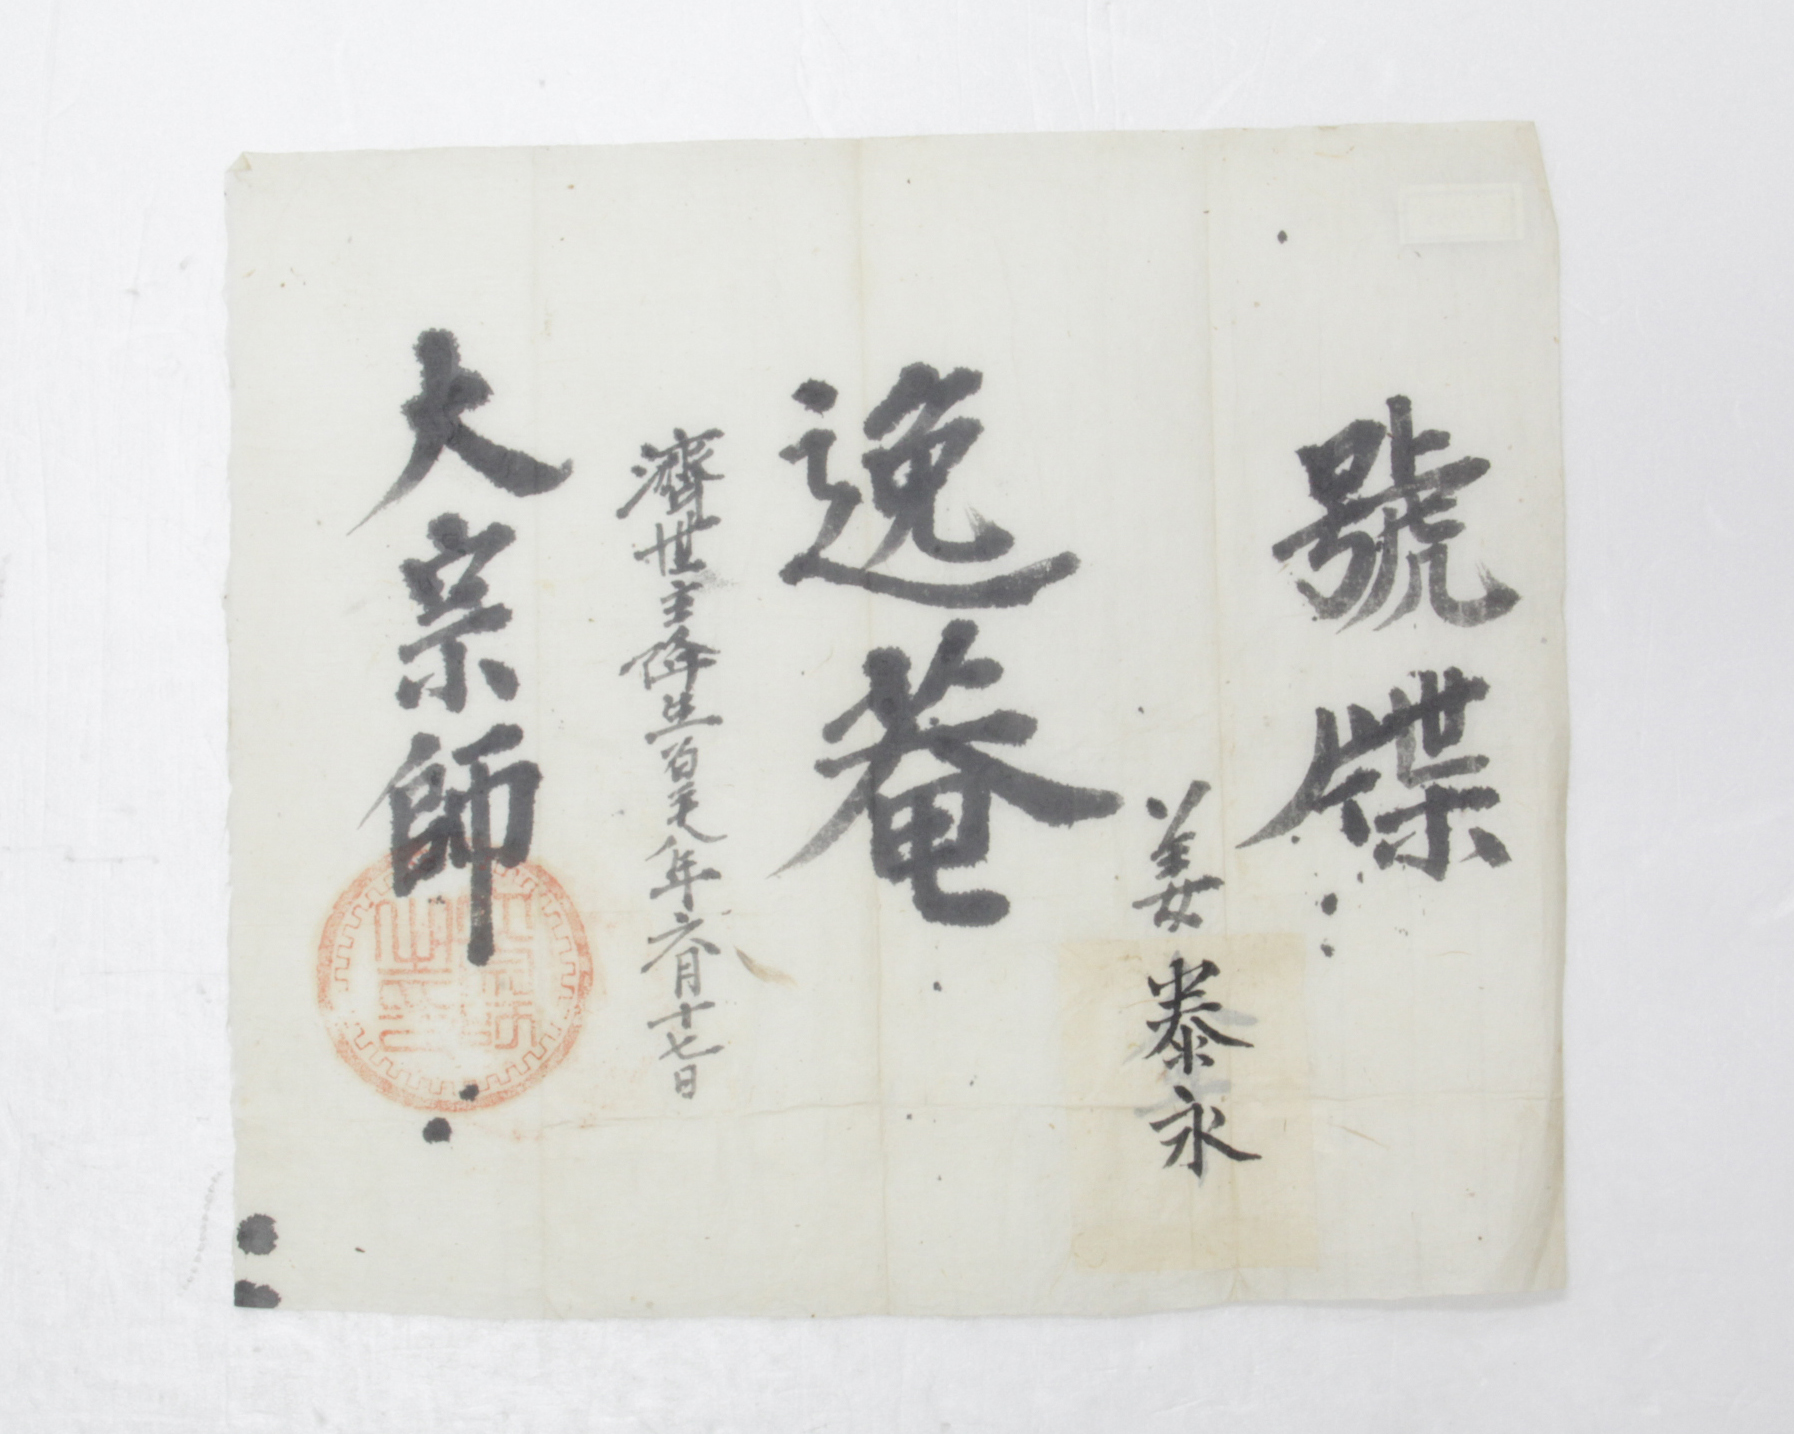 號牒
姜泰永
逸菴
濟世主降生百天八年六月十七日
大宗師